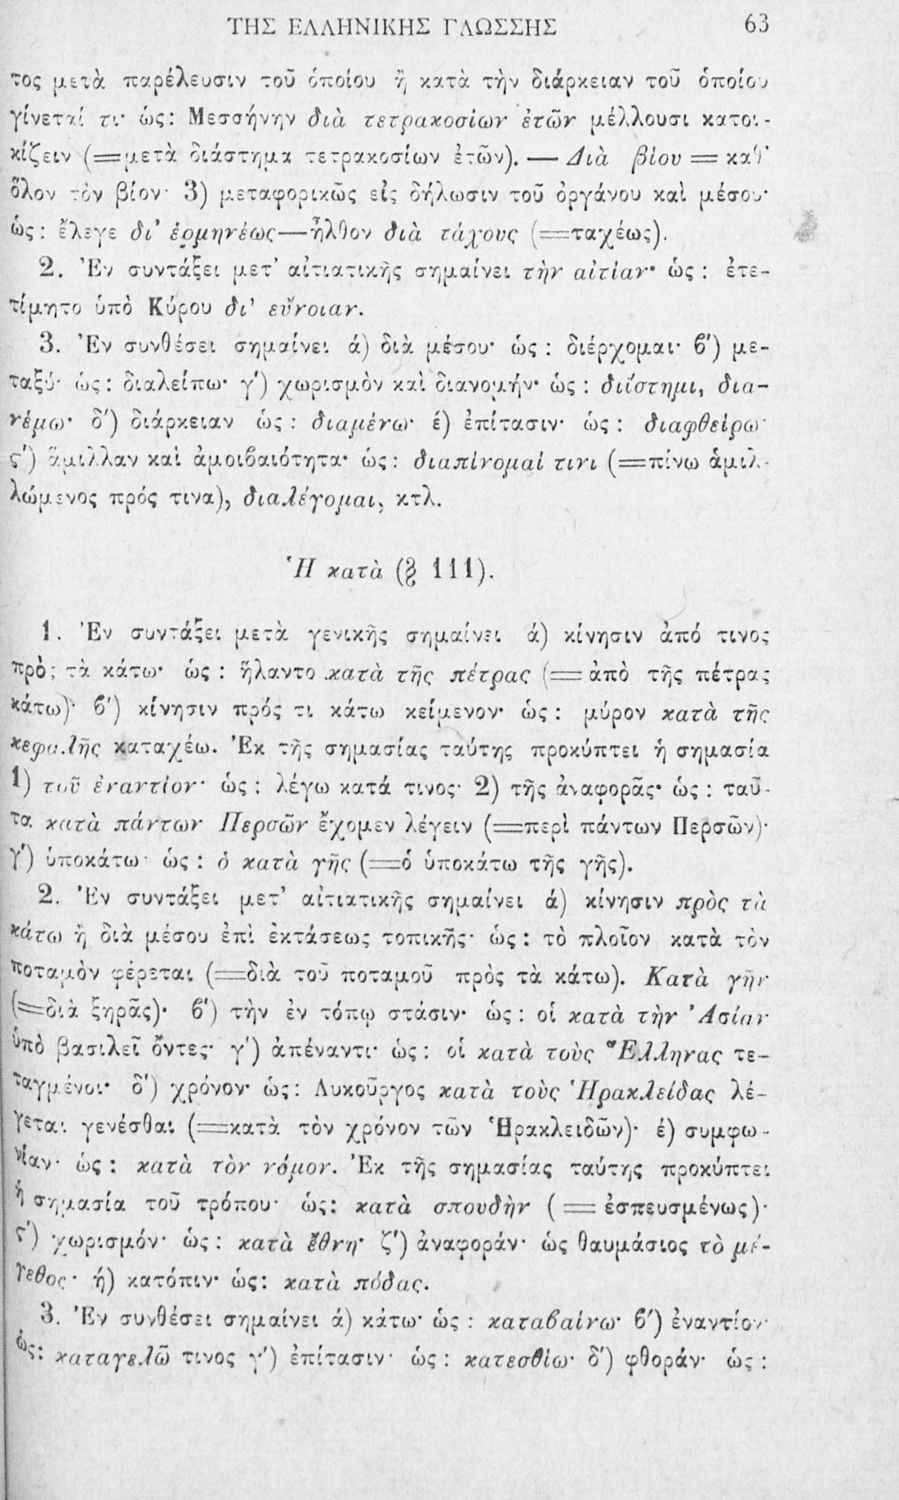 ΤΗΣ ΕΛΛΗΝΙΚΗΣ ΓΛΩΣΣΗΣ 63
τος μετὰ παρέλευσιν τοῦ ὁποίου ἢ κατὰ τὴν διάρκειαν τοῦ ὁποίου
γίνεταί τι· ὡς: Μεσσήνην διὰ τετρακοσίων ἐτῶν μέλλουσι κατοι-
κίζειν (=μετὰ διάστημα τετρακοσίων ἐτῶν). — Διὰ βίου = καθ'
ὅλον τὸν βίον· 3) μεταφορικῶς εἰς δήλωσιν τοῦ ὀργάνου καὶ μέσου·
ὡς: ἔλεγε δι' ἑρμηνέως—ἦλθον διὰ τάχους (=ταχέως).
2. Ἐν συντάξει μετ' αἰτιατικῆς σημαίνει τὴν αἰτίαν· ὡς: ἐτε-
τίμητο ὑπὸ Κύρου δι' εὔνοιαν.
3. Ἐν συνθέσει σημαίνει ά) διὰ μέσου· ὡς: διέρχομαι· ϐ') με-
ταξύ· ὡς: διαλείπω· γ') χωρισμὸν καὶ διανομήν· ὡς: διΐστημι, δια-
νέμω· δ') διάρκειαν ὡς: διαμένω· έ) ἐπίτασιν· ὡς: διαφθείρω·
ς') ἅμιλλαν καὶ ἀμοιϐαιότητα· ὡς: διαπίνομαί τινι (=πίνω ἁμιλ-
λώμενος πρός τινα), διαλέγομαι, κτλ.
Ἡ κατὰ (§ 111).
1. Ἐν συντάξει μετὰ γενικῆς σημαίνει ά) κίνησιν ἀπό τινος
πρὸς τὰ κάτω· ὡς: ἥλαντο κατὰ τῆς πέτρας (=ἀπὸ τῆς πέτρας
κάτω)· ϐ') κίνησιν πρός τι κάτω κείμενον· ὡς: μύρον κατὰ τῆς
κεφαλῆς καταχέω. Ἐκ τῆς σημασίας ταύτης προκύπτει ἡ σημασία
1) τοῦ ἐναντίον· ὡς: λέγω κατά τινος· 2) τῆς ἀναφορᾶς· ὡς: ταῦ-
τα κατὰ πάντων Περσῶν ἔχομεν λέγειν (=περὶ πάντων Περσῶν)·
γ') ὑποκάτω· ὡς: ὁ κατὰ γῆς (=ὁ ὑποκάτω τῆς γῆς).
2. Ἐν συντάξει μετ' αἰτιατικῆς σημαίνει ά) κίνησιν πρὸς τὰ
κάτω ἢ διὰ μέσου ἐπὶ ἐκτάσεως τοπικῆς· ὡς: τὸ πλοῖον κατὰ τὸν
ποταμὸν φέρεται (=διὰ τοῦ ποταμοῦ πρὸς τὰ κάτω). Κατὰ γῆν
(=διὰ ξηρᾶς)· ϐ') τὴν ἐν τόπῳ στάσιν· ὡς: οἱ κατὰ τὴν Ἀσίαν
ὑπὸ βασιλεῖ ὄντες· γ') ἀπέναντι· ὡς: οἱ κατὰ τοὺς Ἕλληνας τε-
ταγμένοι· δ') χρόνον· ὡς: Λυκοῦργος κατὰ τοὺς Ἡρακλείδας λέ-
γεται γενέσθαι (=κατὰ τὸν χρόνον τῶν Ἡρακλειδῶν)· έ) συμφω-
νίαν· ὡς: κατὰ τὸν νόμον. Ἐκ τῆς σημασίας ταύτης προκύπτει
ἡ σημασία τοῦ τρόπου· ὡς: κατὰ σπουδὴν (= ἐσπευσμένως)·
ς') χωρισμόν· ὡς: κατὰ ἔθνη· ζ') ἀναφοράν· ὡς θαυμάσιος τὸ μέ-
γεθος· ή) κατόπιν· ὡς: κατὰ πόδας.
3. Ἐν συνθέσει σημαίνει ά) κάτω· ὡς: καταϐαίνω· ϐ') ἐναντίον·
ὡς: καταγελῶ τινος γ') ἐπίτασιν· ὡς: κατεσθίω· δ') φθοράν· ὡς: